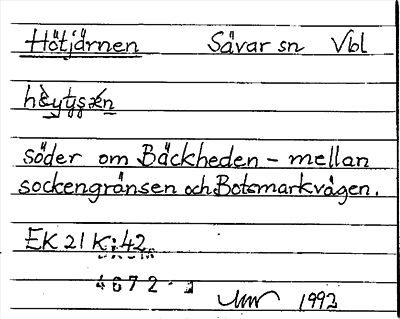 Hötjärnen Sävar sn Vbl
söder om Bäckheden - mellan
sockengränsen och Botsmarkvägen.
EK 21 K:42
4672
1992